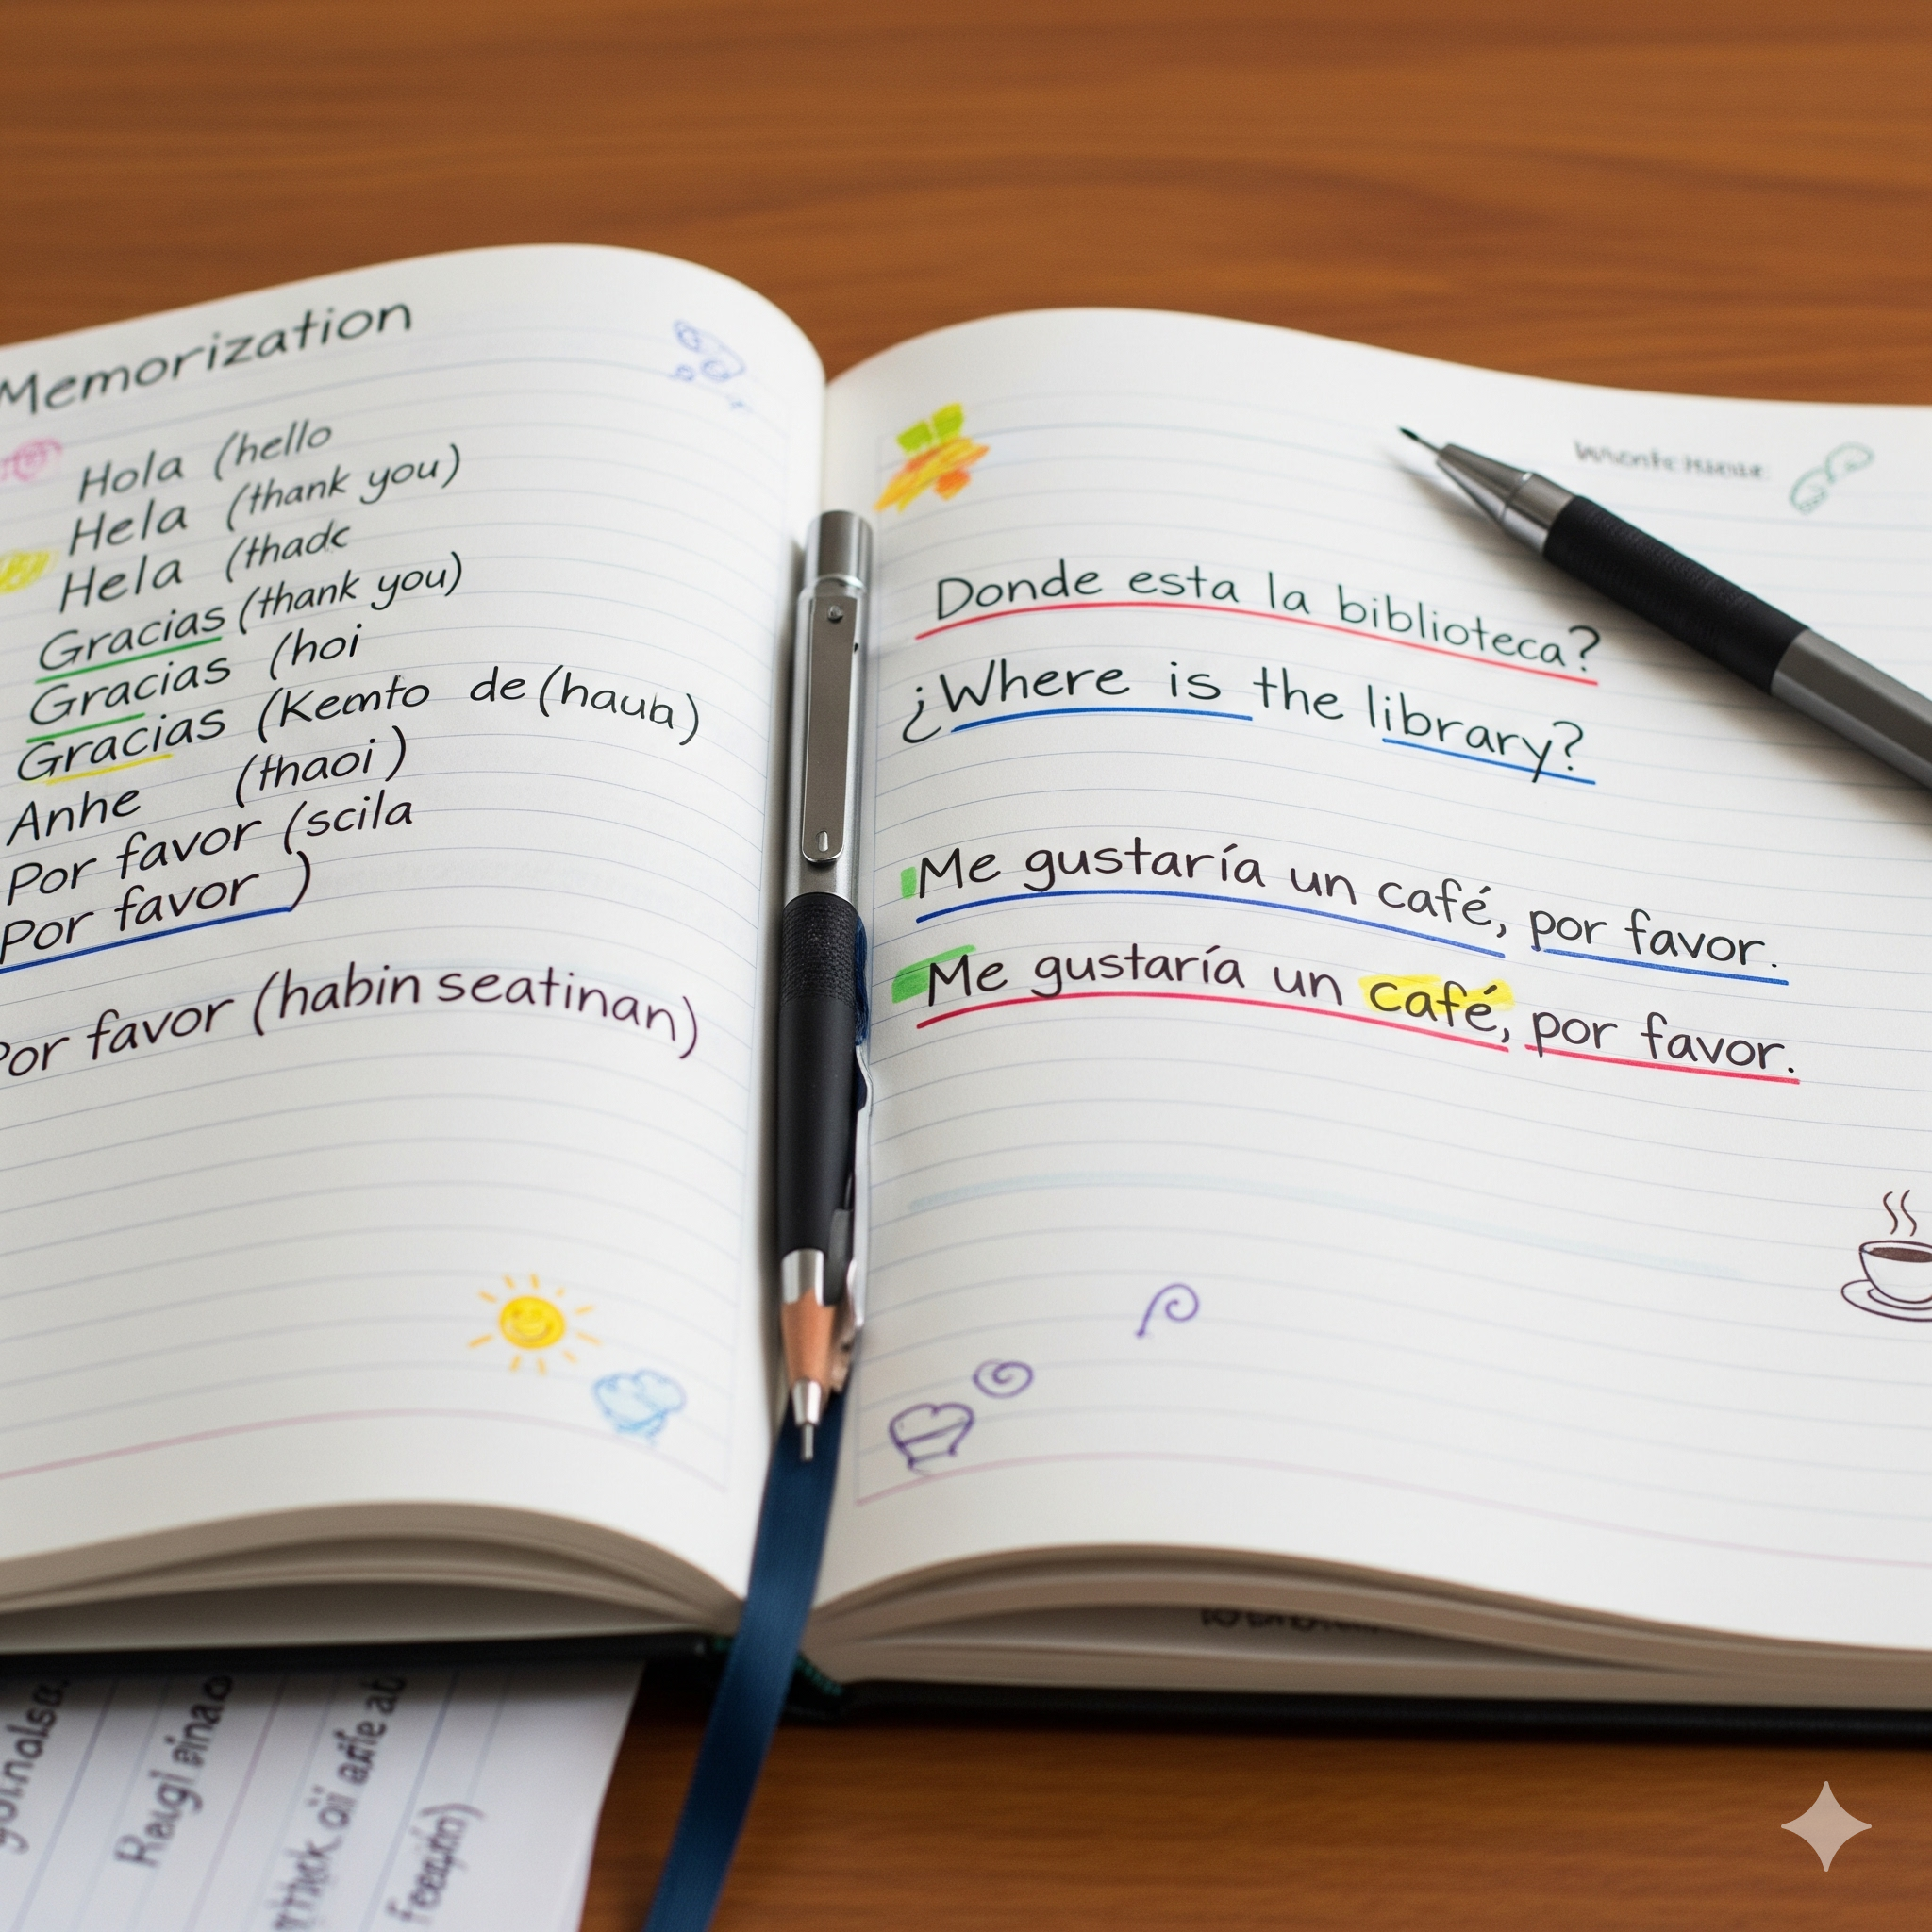 Memorization
Hola (hello
Hela (thank you)
Hela (thadc
Gracias (thank you)
Gracias (hoi
Gracias (Kemto de (haub)
Anhe (thaoi)
Por favor (scila
Por favor )
Por favor (habin seatinan)
Donde esta la biblioteca?
¿Where is the library?
Me gustaría un café, por favor.
Me gustaría un café, por favor.